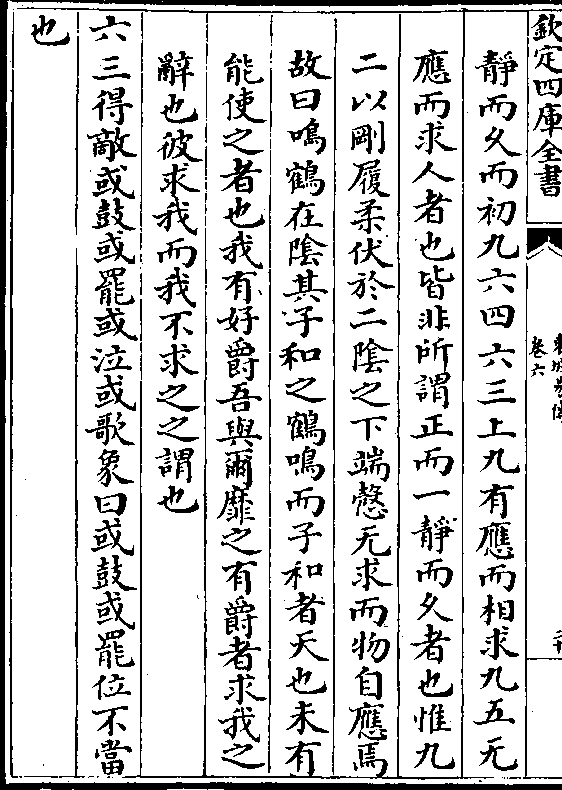 欽定四庫全書
卷六
靜而久而初九六四六三上九有應而相求九五无
應而求人者也皆非所謂正而一靜而久者也惟九
二以剛履柔伏於二陰之下端慤无求而物自應焉
故曰鳴鶴在陰其子和之鶴鳴而子和者天也未有
能使之者也我有好爵吾與爾靡之有爵者求我之
辭也彼求我而我不求之之謂也
六三得敵或鼓或罷或泣或歌象曰或鼓或罷位不當
也